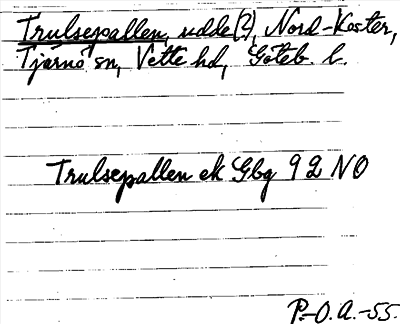 Trulsepallen, udde(?), Nord-Koster,
Tjärnö sn, Vette hd, Göteb. l.
Trulsepallen ek Gbg 92 NO
P.-O.A.-55.